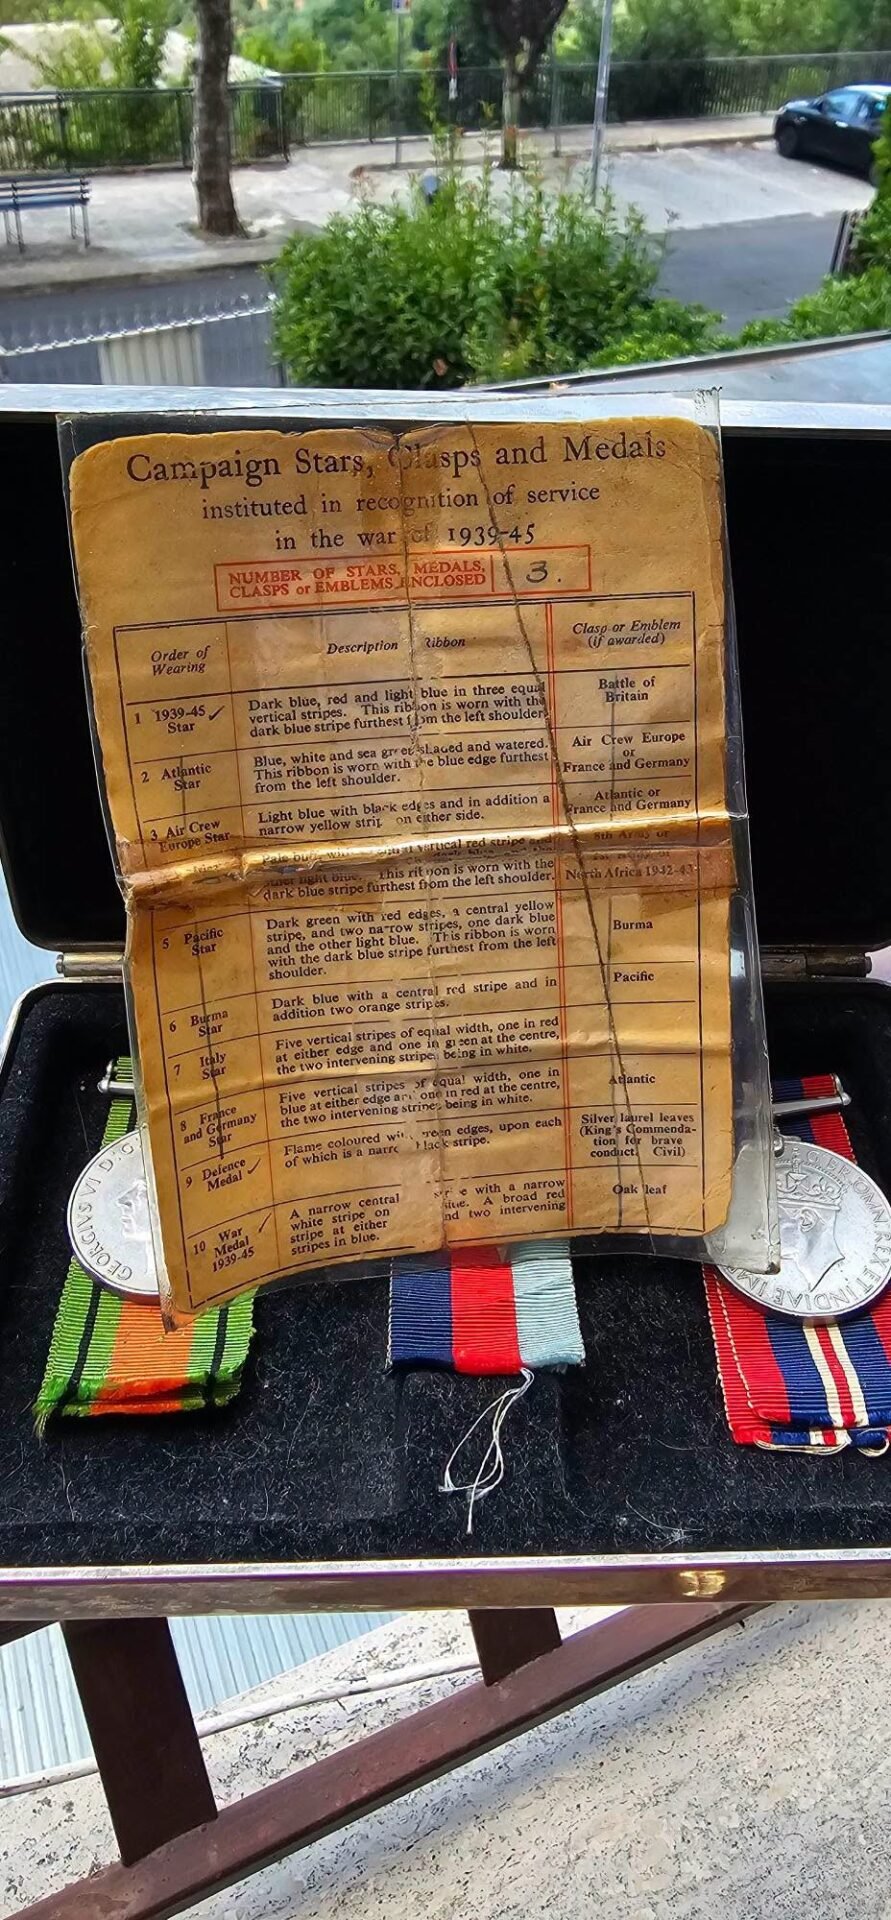 Campaign Stars, Clasps and Medals
instituted in recognition of service
in the war of 1939-45
NUMBER OF STARS, MEDALS,
CLASPS or EMBLEMS ENCLOSED
3.
Order of
Wearing
Description Ribbon
Clasp or Emblem
(if awarded)
1 1939-45 ✓
Star
Dark blue, red and light blue in three equal
vertical stripes. This ribbon is worn with the
dark blue stripe furthest from the left shoulder.
Battle of
Britain
2 Atlantic
Star
Blue, white and sea green shaded and watered.
This ribbon is worn with the blue edge furthest
from the left shoulder.
Air Crew Europe
or
France and Germany
3 Air Crew
Europe Star
Light blue with black edges and in addition a
narrow yellow strip on either side.
Atlantic or
France and Germany
Pale buff, with central vertical red stripe and
light blue. This ribbon is worn with the
dark blue stripe furthest from the left shoulder.
8th Army or
1st Army or
North Africa 1942-43
5 Pacific
Star
Dark green with red edges, a central yellow
stripe, and two narrow stripes, one dark blue
and the other light blue. This ribbon is worn
with the dark blue stripe furthest from the left
shoulder.
Burma
6 Burma
Star
Dark blue with a central red stripe and in
addition two orange stripes.
Pacific
7 Italy
Star
Five vertical stripes of equal width, one in red
at either edge and one in green at the centre,
the two intervening stripes being in white.
8 France
and Germany
Star
Five vertical stripes of equal width, one in
blue at either edge and one in red at the centre,
the two intervening stripes being in white.
Atlantic
9 Defence
Medal ✓
Flame coloured with green edges, upon each
of which is a narrow black stripe.
Silver laurel leaves
(King's Commenda-
tion for brave
conduct. Civil)
10 War ✓
Medal
1939-45
A narrow central stripe with a narrow
white stripe on A broad red
stripe at either and two intervening
stripes in blue.
Oak leaf
GEORGIVS VI D:G
ET INDIAE IMP